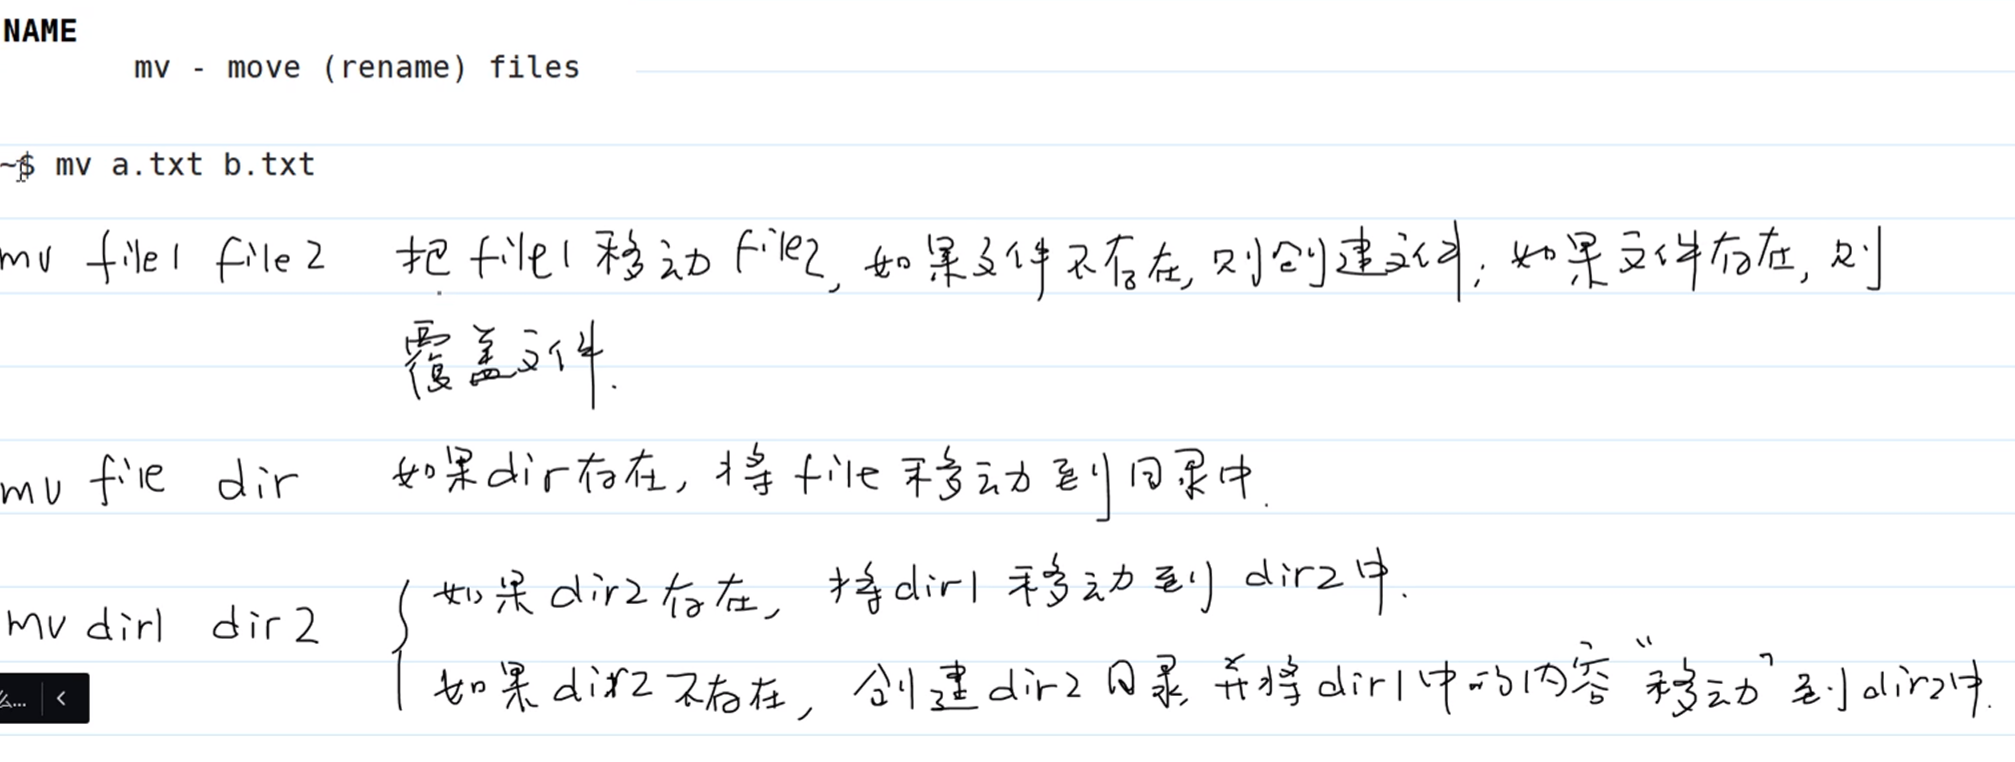 NAME
mv - move (rename) files
~$ mv a.txt b.txt
mv file1 file2 把 file1 移动 file2, 如果文件不存在, 则创建文件; 如果文件存在, 则
覆盖文件.
mv file dir 如果dir存在, 将 file 移动到目录中.
如果 dir2 存在, 将dir1 移动到 dir2中.
mv dir1 dir2
如果 dir2 不存在, 创建 dir2 目录, 并将 dir1中的内容 "移动" 到 dir2中.
么... <